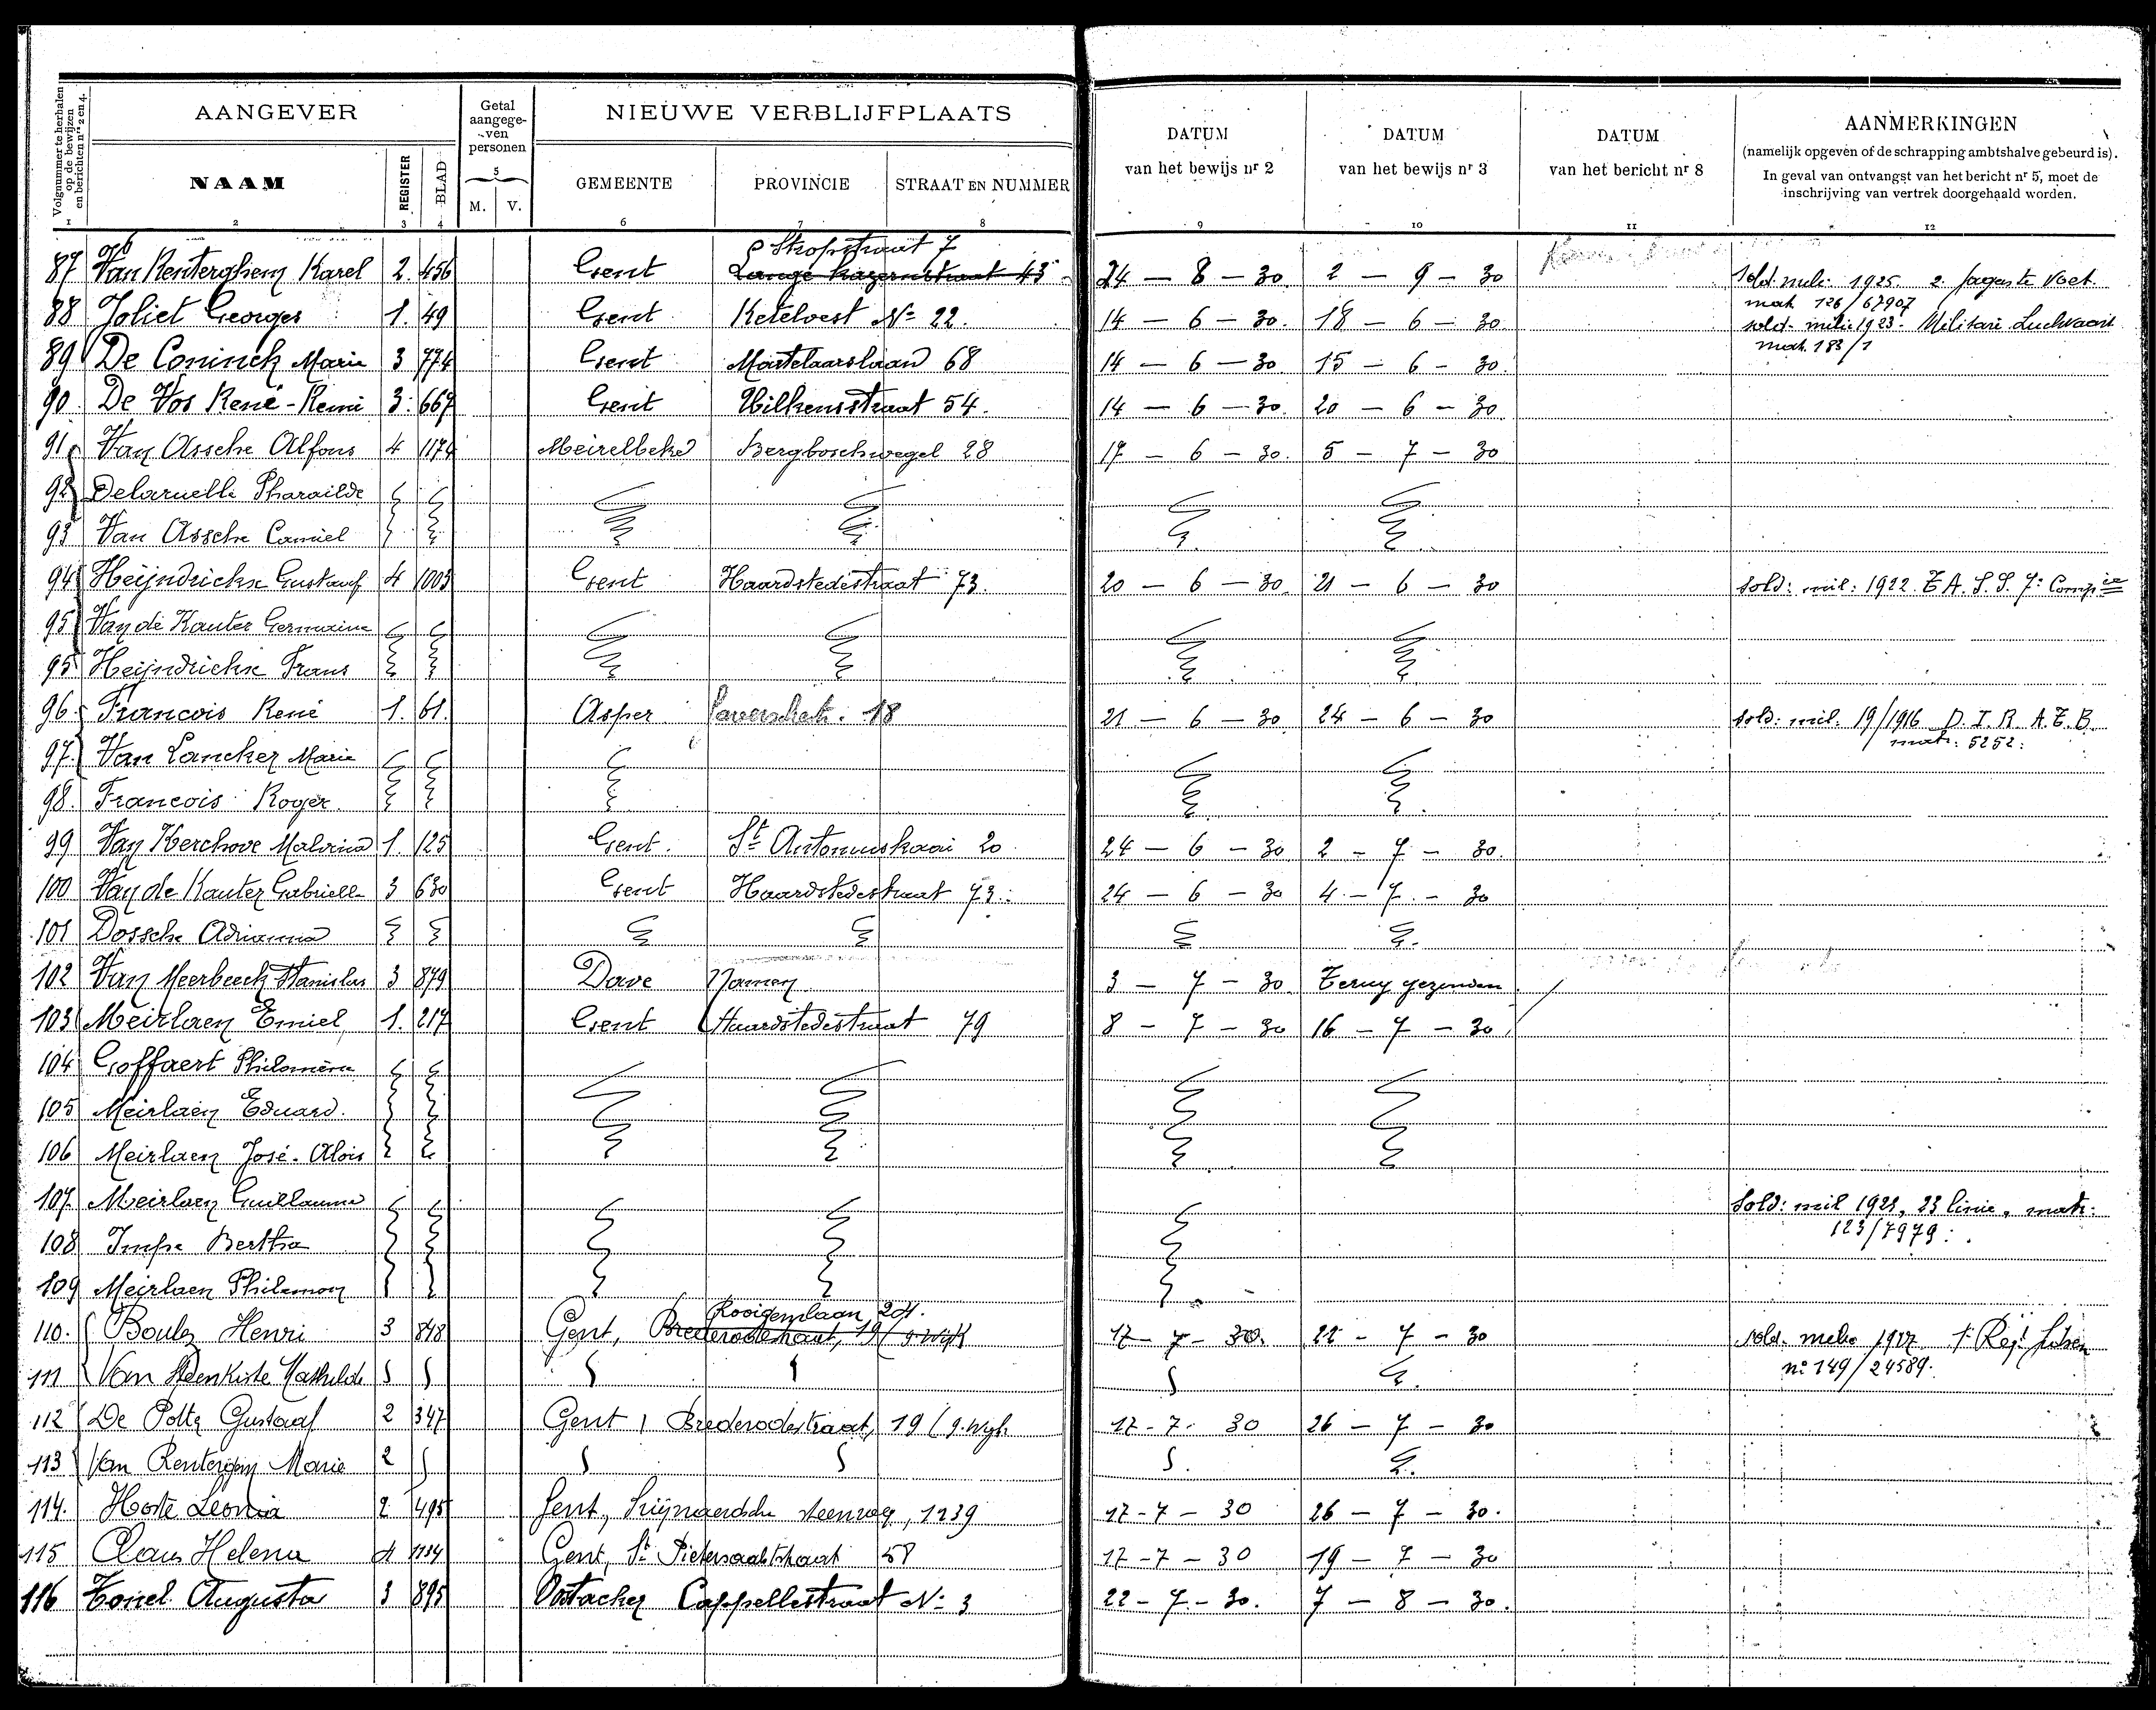 Volgnummer te herhalen op de bewijzen en berichten nrs 2 en 4.
AANGEVER
NAAM
REGISTER
BLAD
Getal aangege-ven personen
M. V.
NIEUWE VERBLIJFPLAATS
GEMEENTE PROVINCIE STRAAT EN NUMMER
DATUM van het bewijs nr 2
DATUM van het bewijs nr 3
DATUM van het bericht nr 8
AANMERKINGEN
(namelijk opgeven of de schrapping ambtshalve gebeurd is).
In geval van ontvangst van het bericht nr 5, moet de
inschrijving van vertrek doorgehaald worden.
1 2 3 4 5 6 7 8 9 10 11 12
Stropstraat 7
87 Van Renterghem Karel 2. 456 Gent Lange Kazernstraat 43 24 - 8 - 30 2 - 9 - 30 sold. milic. 1925 2. Jagers te Voet.
mat. 126/67907
88 Joliet Georges 1. 49 Gent Ketelvest No 22. 14 - 6 - 30. 18 - 6 - 30 sold. milic 1923. Militaire Luchtvaart
mat. 183/1
89 De Coninck Marie 3 774 Gent Martelaarslaan 68 14 - 6 - 30. 15 - 6 - 30
90. De Vos René-Remi 3. 667 Gent Hilkensstraat 54. 14 - 6 - 30. 20 - 6 - 30
91 Van Assche Alfons 4 1174 Meirelbeke Bergboschwegel 28 17 - 6 - 30. 5 - 7 - 30
92 Delaruelle Pharailde
93 Van Assche Camiel
94 Heijndrickx Gustaaf 4 1003 Gent Haardstedestraat 73. 20 - 6 - 30. 21 - 6 - 30 sold: mil: 1922. T.A. S.S. 7: Compie
95 Van de Kauter Germaine
95 Heijndrickx Frans
96. Francois René 1. 61. Asper 18 21 - 6 - 30 24 - 6 - 30 sold: mil: 19/1916 D. I. R. A. T. B.
matr: 5252:
97. Van Lancker Marie
98. Francois Roger
99 Van Kerchove Malvina 1. 125 Gent. St Antoniuskaai 20 24 - 6 - 30 2 - 7 - 30.
100 Van de Kauter Gabrielle 3 630 Gent Haardstedestraat 73. 24 - 6 - 30 4 - 7 - 30
101 Dossche Adrianna
102 Van Meerbeeck Stanislas 3 879 Dave Namen 3 - 7 - 30. Terug gezonden
103 Meirlaen Emiel 1. 217 Gent Haardstedestraat 79 8 - 7 - 30 16 - 7 - 30
104 Goffaert Philomène
105 Meirlaen Eduard.
106 Meirlaen José-Alois
107. Meirlaen Guillaume Sold: mil 1921, 23 linie, matr:
123/7979:
108 Impe Bertha
109 Meirlaen Philemon
Rooigemlaan, 204.
110. Boulez Henri 3 848 Gent, Brederodestraat, 19 (g. Wijk 17 - 7 - 30. 22 - 7 - 30 sold. milic 1927 1e Regt
no 149/24589.
111 Van Steenkiste Mathilde
112 De Potter Gustaaf 2 347 Gent, Brederodestraat, 19 (g. Wijk 17-7- 30 26 - 7 - 30
113 Van Rentergem Marie 2
114. Hoste Leonia 2 495 Gent, Zwijnaerdsche steenweg, 1239 17-7 - 30 26 - 7 - 30.
115 Claus Helena 4 1134 Gent, St Pietersaalststraat 58 17-7 - 30 19 - 7 - 30
116 Tonel Augusta 3 895 Oostacker Cappellestraat No 3 22 - 7 - 30. 7 - 8 - 30.